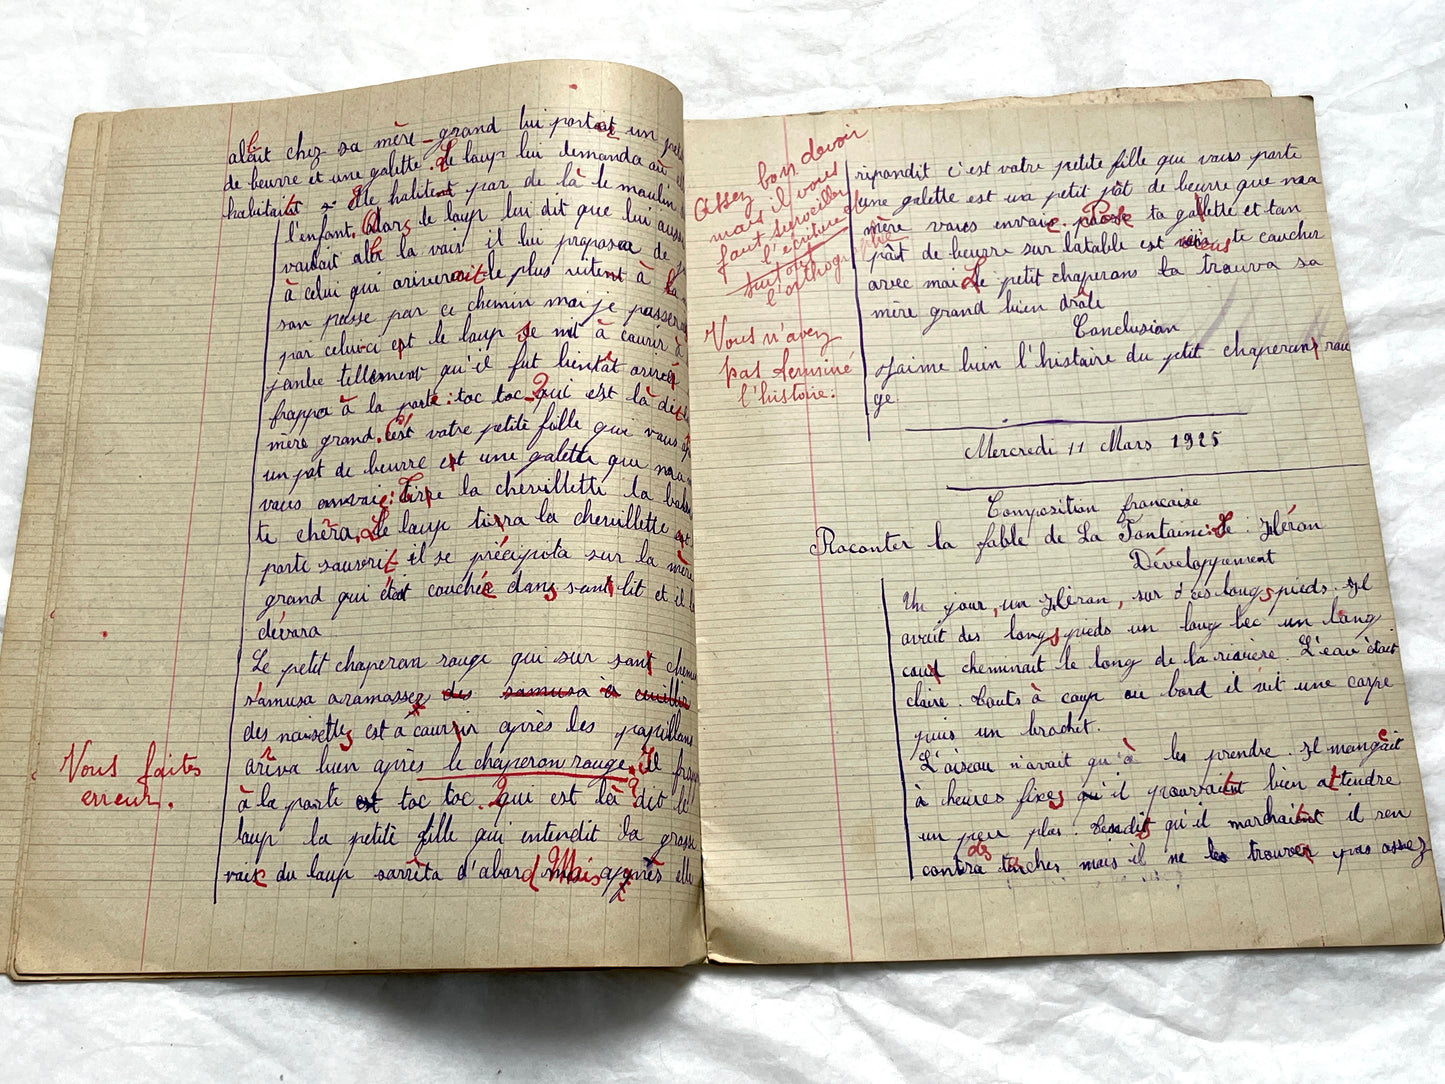 alait chez sa mère-grand lui portait un petit
de beurre et une galette. Le loup lui demanda où elle
habitait elle habitent par de là le moulin
l'enfant. Alors le loup lui dit que lui aussi
voulait la voir il lui proposa de
à celui qui ariverait le plus vite à la
son passe par ce chemin mai je passerai
par celui-ci et le loup se mit à courir à
jambe tellement qu'il fut bientôt arivé
frappa à la porte: toc toc. qui est là dit la
mère grand. C'est votre petite fille qui vous
un pot de beurre et une galette que ma
vous envoie: Tire la chevillette la bobi
te chéra. Le loup tira la chevillette et
porte s'ouvrit il se précipita sur la mère
grand qui était couchée dans son lit et il la
dévora
Le petit chaperon rouge qui sur son chemin
s'amusa a ramasser des samusa à cueillir
des noisettes est à courir après les papillons
ariva bien après le chaperon rouge. Il frap
Vous faites
erreur.
à la porte est toc toc. qui est là? dit le
loup la petite fille qui intendit la grosse
voix du loup s'arrêta d'abord Mais après elle
Assez bon devoir
mais il vous
faut surveiller
l'écriture et
surtout
l'orthographe
Vous n'avez
pas terminé
l'histoire.
répondit c'est votre petite fille qui vous porte
une galette est un petit pôt de beurre que ma
mère vous envoie. Pose ta gallette et ton
pôt de beurre sur la table est viens te coucher
avec moi Le petit chaperons la trouva sa
mère grand bien drôle
Conclusion
J'aime bien l'histoire du petit chaperon rou
ge
Mercredi 11 Mars 1925
Composition française
Raconter la fable de La Fontaine: Le Héron
Développement
Un jour, un Héron, sur des longs pieds. Il
avait des longs pieds un long bec un long
cou cheminait le long de la rivière. L'eau était
claire. touts à coup au bord il vit une carpe
puis un brochet.
L'oiseau n'avait qu'à les prendre. Il mangeait
à heures fixes qu'il pourrait bien attendre
un peu plus. tendis qu'il marchait il ren
contra des tanches mais il ne les trouver pas assez